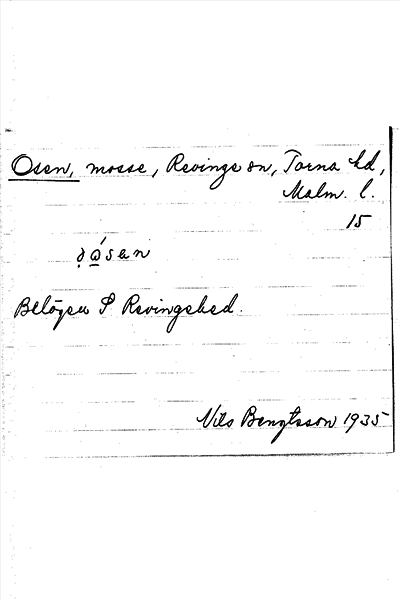 Osen, mosse, Revinge sn, Torna hd,
Malm. l.
15
Belägen P Revingehed.
Nils Bengtsson 1935